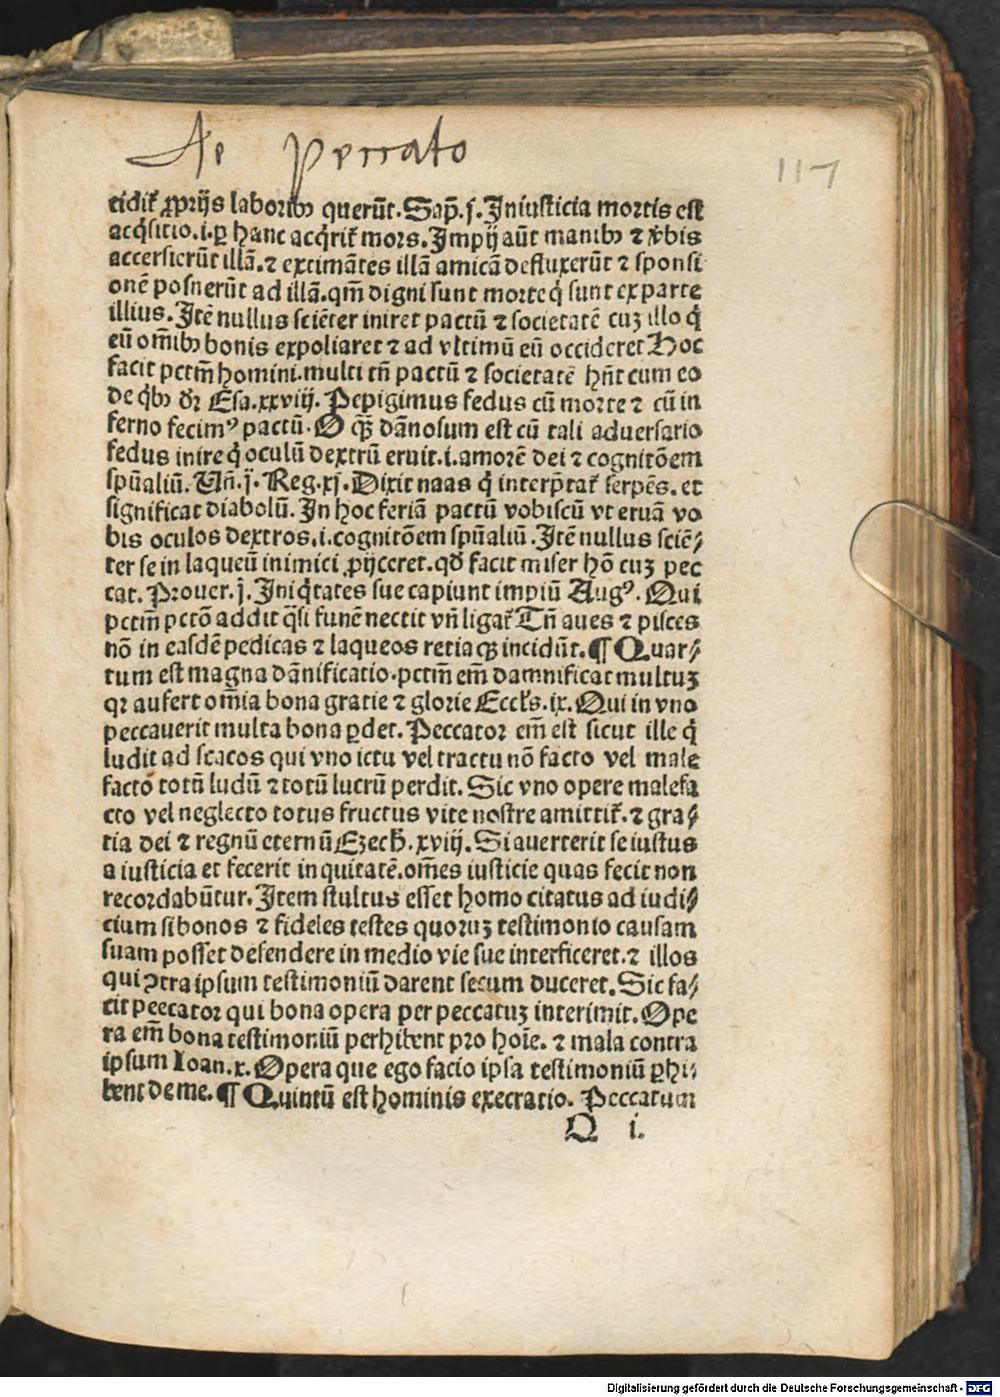 de peccato
117
cidit̃ ꝓprijs laboribꝫ querūt. Sap̃. j. Iniusticia mortis est
acq̇sitio. i. ꝑ hanc acq̇rit̃ mors. Impij aūt manibꝫ ⁊ v̾bis
accersierūt illā. ⁊ extimātes illā amicā defluxerūt ⁊ sponsi
onē posuerūt ad illā. qm̃ digni sunt morte q̇ sunt ex parte
illius. Itē nullus sciēter iniret pactū ⁊ societatē cuȝ illo q̇
eū om̃ibꝫ bonis expoliaret ⁊ ad vltimū eū occideret Hoc
facit pctm̃ homini. multi tñ pactū ⁊ societatē hñt cum eo
de q̇bꝫ dꝛ Esa. xxviij. Pepigimus fedus cū morte ⁊ cū in
ferno fecimꝰ pactū. O qꝫ̃ dānosum est cū tali aduersario
fedus inire q̇ oculū dextrū eruit. i. amorē dei ⁊ cognitōem
spūaliū. Vñ. j. Reg. xj. Dixit naas q̇ interp̃tat̃ serpēs. et
significat diabolū. In hoc feriā pactū vobiscū vt eruā vo
bis oculos dextros. i. cognitōem spūaliū. Itē nullus sciē⸗
ter se in laqueū inimici ꝓijceret. qð facit miser hõ cuȝ pec
cat. Prouer. j. Iniq̇tates sue capiunt impiū Augꝰ. Qui
pctm̃ pctō addit q̇si funē nectit vñ ligat̃ Tñ aues ⁊ pisces
nō in easdē pedicas ⁊ laqueos retia qꝫ incidūt. ¶ Quar⸗
tum est magna dānificatio. pctm̃ em̃ damnificat multuȝ
qꝛ aufert om̃ia bona gratie ⁊ glorie Eccl̃s. ix. Qui in vno
peccauerit multa bona ꝑdet. Peccator em̃ est sicut ille q̇
ludit ad scacos qui vno ictu vel tractu nō facto vel male
facto totū ludū ⁊ totū lucrū perdit. Sic vno opere malefa
cto vel neglecto totus fructus vite nostre amittit̃. ⁊ gra⸗
tia dei ⁊ regnū eternū Ezech̃. xviij. Si auerterit se iustus
a iusticia et fecerit inquitatē. om̃es iusticie quas fecit non
recordabūtur. Item stultus esset homo citatus ad iudi⸗
cium si bonos ⁊ fideles testes quoruȝ testimonio causam
suam posset defendere in medio vie sue interficeret. ⁊ illos
qui ꝯtra ipsum testimoniū darent secum duceret. Sic fa⸗
cit peccator qui bona opera per peccatuȝ interimit. Ope
ra em̃ bona testimoniū perhibent pro hoīe. ⁊ mala contra
ipsum Ioan. x. Opera que ego facio ipsa testimoniū ꝑhi⸗
bent de me. ¶ Quintū est hominis execratio. Peccatum
Q i.
Digitalisierung gefördert durch die Deutsche Forschungsgemeinschaft - DFG